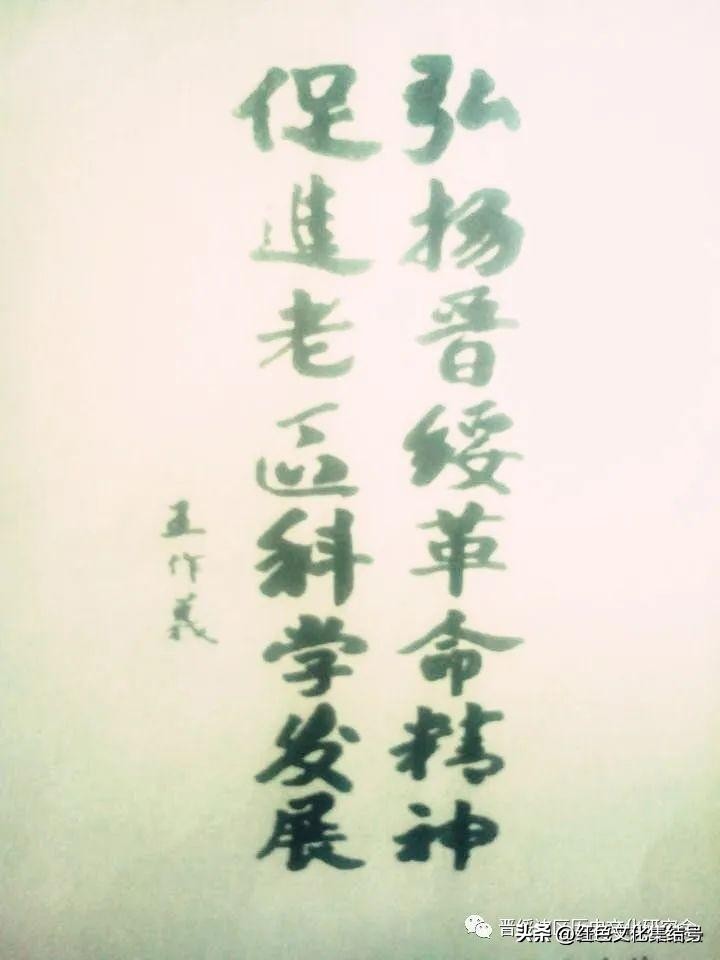 弘扬晋绥革命精神
促進老區科学发展
王作義
晋绥边区历史文化研究会
头条 @红色文化集结号